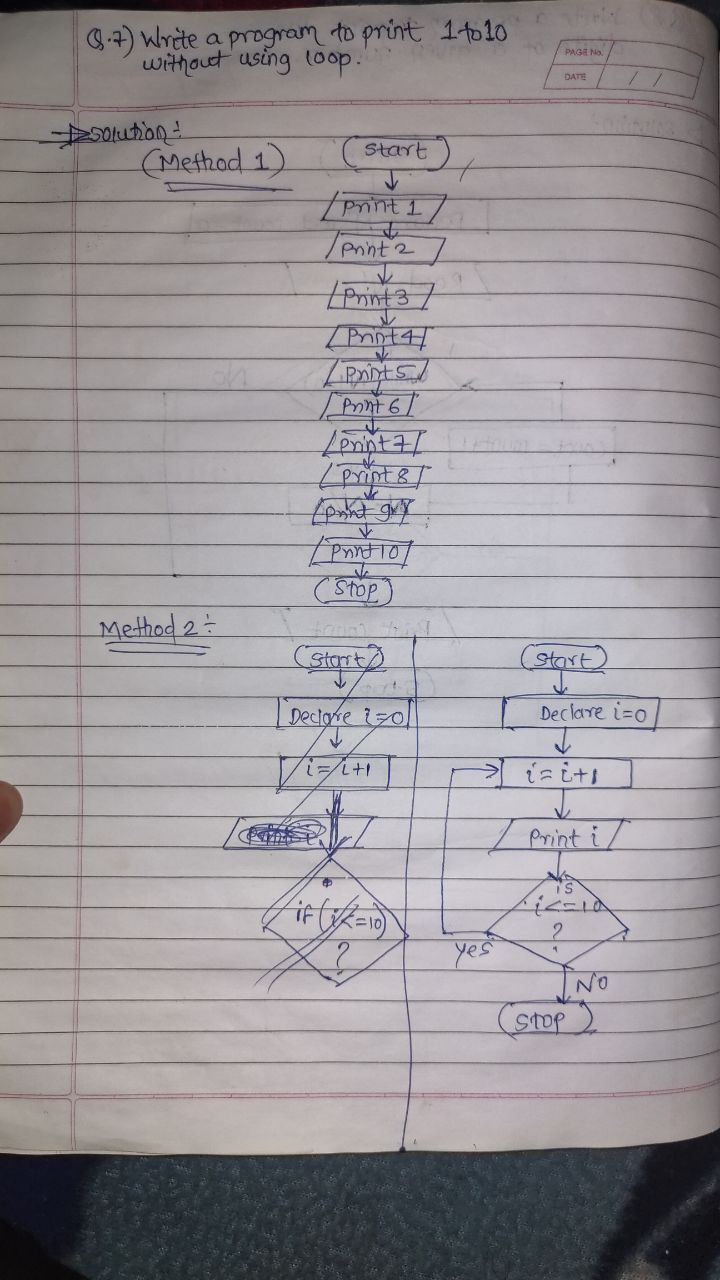 Q.7) Write a program to print 1 to 10
without using loop.
PAGE No.
DATE / /
Solution:-
(Method 1)
Start
Print 1
Print 2
Print 3
Print 4
Print 5
Print 6
Print 7
Print 8
Print 9
Print 10
Stop
Method 2:-
Start
Declare i=0
i=i+1
if (i<=10)
?
Start
Declare i=0
i=i+1
Print i
is
i<=10
?
yes
No
Stop